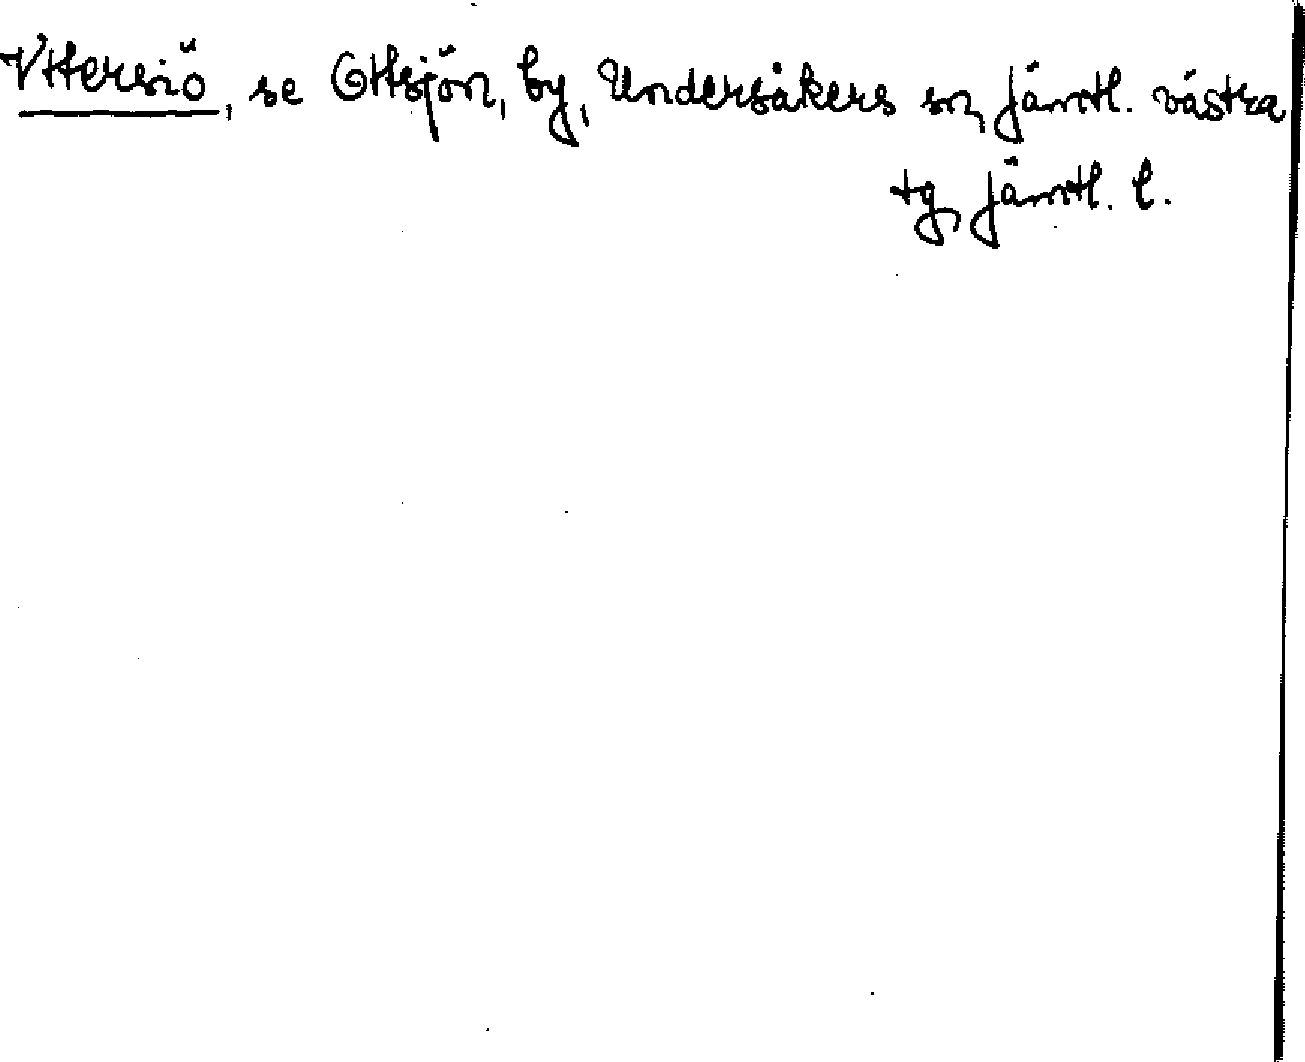 Vttersiö, se Ottsjön, by, Undersåkers sn, Jämtl. västra
tg, Jämtl. l.